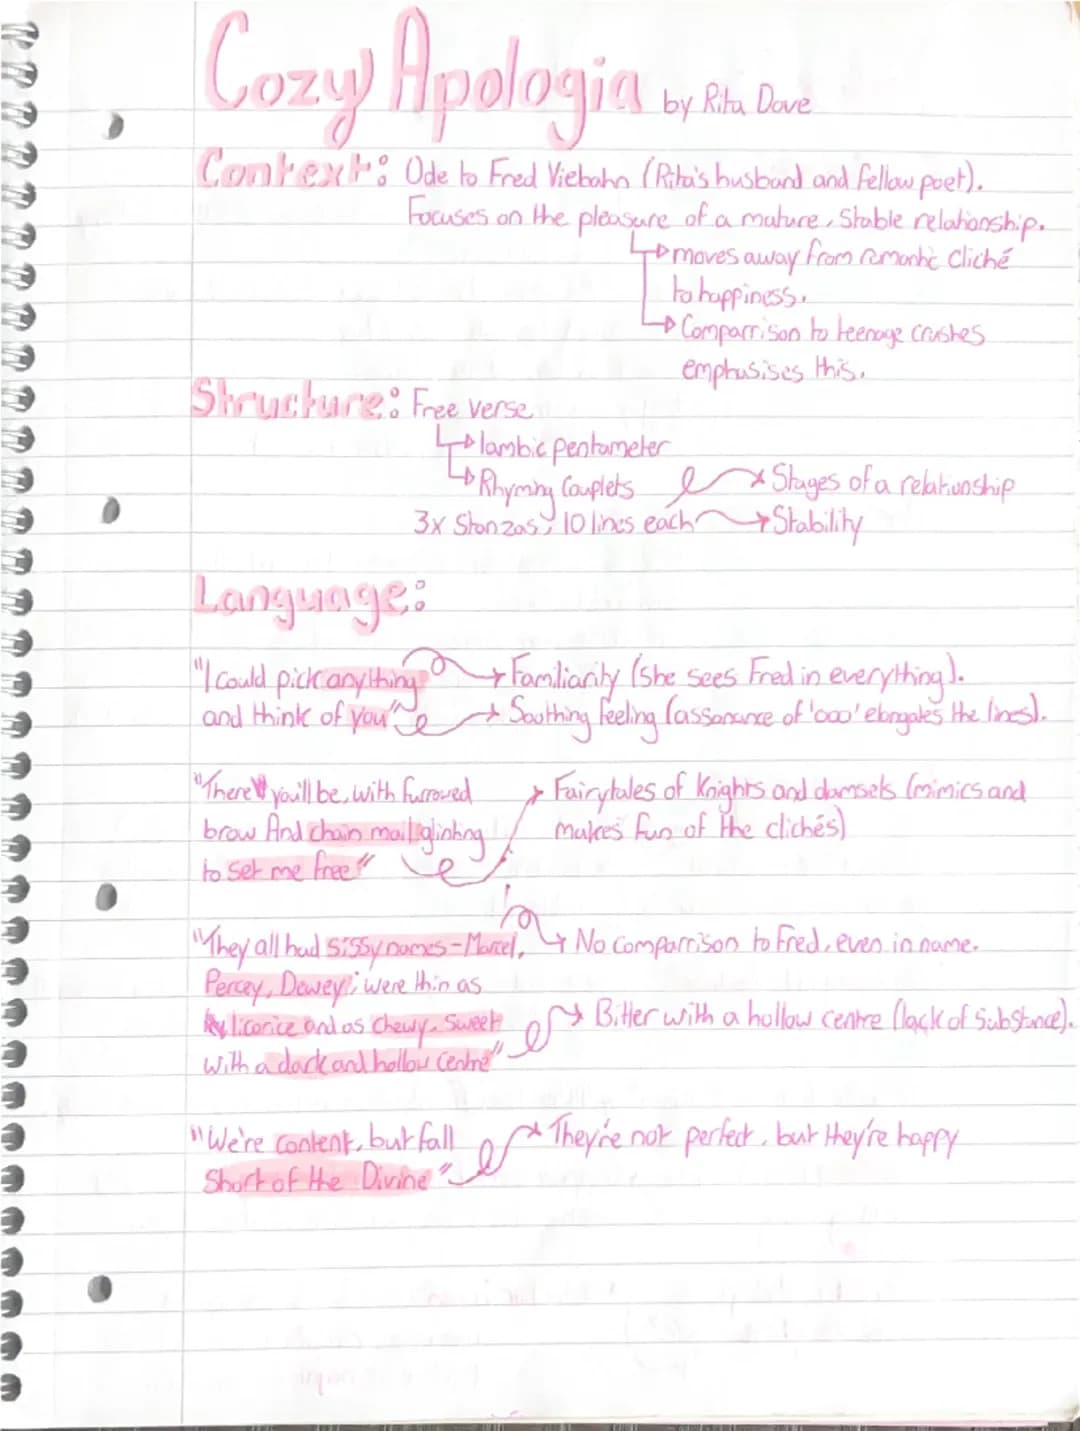 Cozy Apologia by Rita Dove
Context: Ode to Fred Viebahn (Rita's husband and fellow poet).
Focuses on the pleasure of a mature, stable relationship.
moves away from romantic cliché
to happiness.
Comparrison to teenage crushes
emphasises this.
Structure: Free verse
Iambic pentameter
Rhyming Couplets
Stages of a relationship
3x Stanzas, 10 lines each
Stability
Language:
"I could pick anything
and think of you"
Familiarity (she sees Fred in everything).
Soothing feeling (assonance of 'ooo' elongates the lines).
"There you'll be, with furrowed
brow And chain mail glinting
to set me free"
Fairytales of Knights and damsels (mimics and
makes fun of the clichés)
"They all had sissy names - Marcel,
Percey, Dewey; were thin as
licorice and as chewy, Sweet
with a dark and hollow centre"
No Comparrison to Fred, even in name.
Bitter with a hollow centre (lack of Substance).
"We're content, but fall
Short of the Divine"
They're not perfect, but they're happy